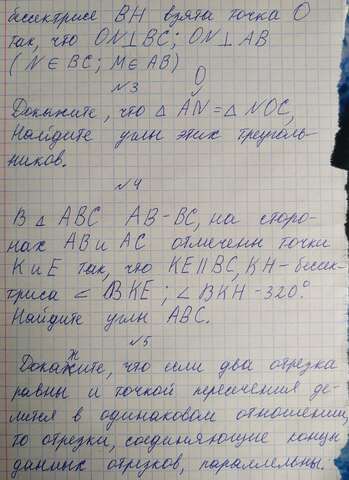 бессектрисе BH взята точка O
так, что ON⊥BC; ON⊥AB
(N∈BC; M∈AB)
№3
O
Докажите, что △ AN = △ NOC,
Найдите углы этих треуголь-
ников.
№4
В △ ABC AB-BC, на сторо-
нах AB и AC отмечены точки
K и E так, что KE∥BC, KH-биссек-
триса ∠ BKE; ∠BKH-320°
Найдите углы ABC.
№5
Докажите, что если два отрезка
равны и точкой пересечения де-
лятся в одинаковом отношении,
то отрезки, соединяющие концы
данных отрезков, параллельны.